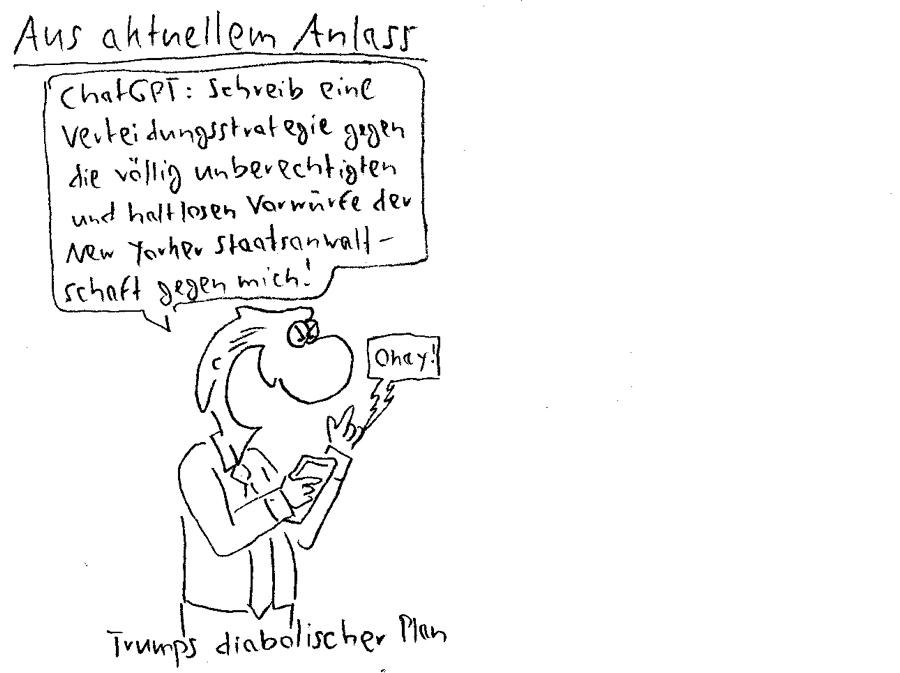 Aus aktuellem Anlass
ChatGPT: Schreib eine
Verteidungsstrategie gegen
die völlig unberechtigten
und haltlosen Vorwürfe der
New Yorker Staatsanwalt-
schaft gegen mich!
Okay!
Trumps diabolischer Plan